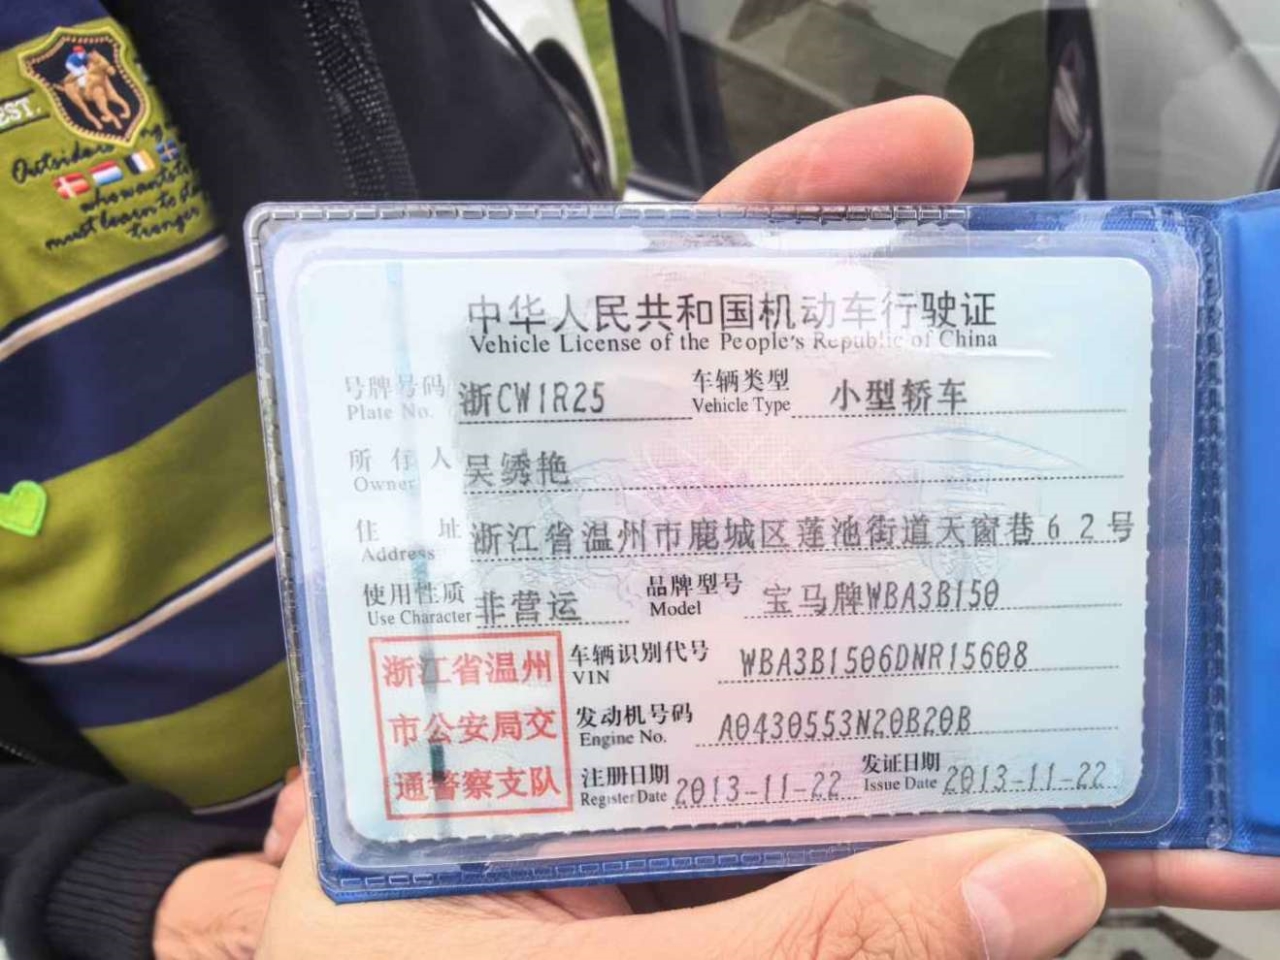 EST.
Outsiders
who wants to
must learn to
中华人民共和国机动车行驶证
Vehicle License of the People's Republic of China
号牌号码 浙CW1R25 车辆类型 小型轿车
Plate No. Vehicle Type
所行人 吴绣艳
Owner
住址 浙江省温州市鹿城区莲池街道天窗巷62号
Address
使用性质 非营运 品牌型号 宝马牌WBA3B150
Use Character Model
浙江省温州
市公安局交
通警察支队
车辆识别代号 WBA3B1506DNR15608
VIN
发动机号码 A0430553N20B20B
Engine No.
注册日期 2013-11-22 发证日期 2013-11-22
Register Date Issue Date